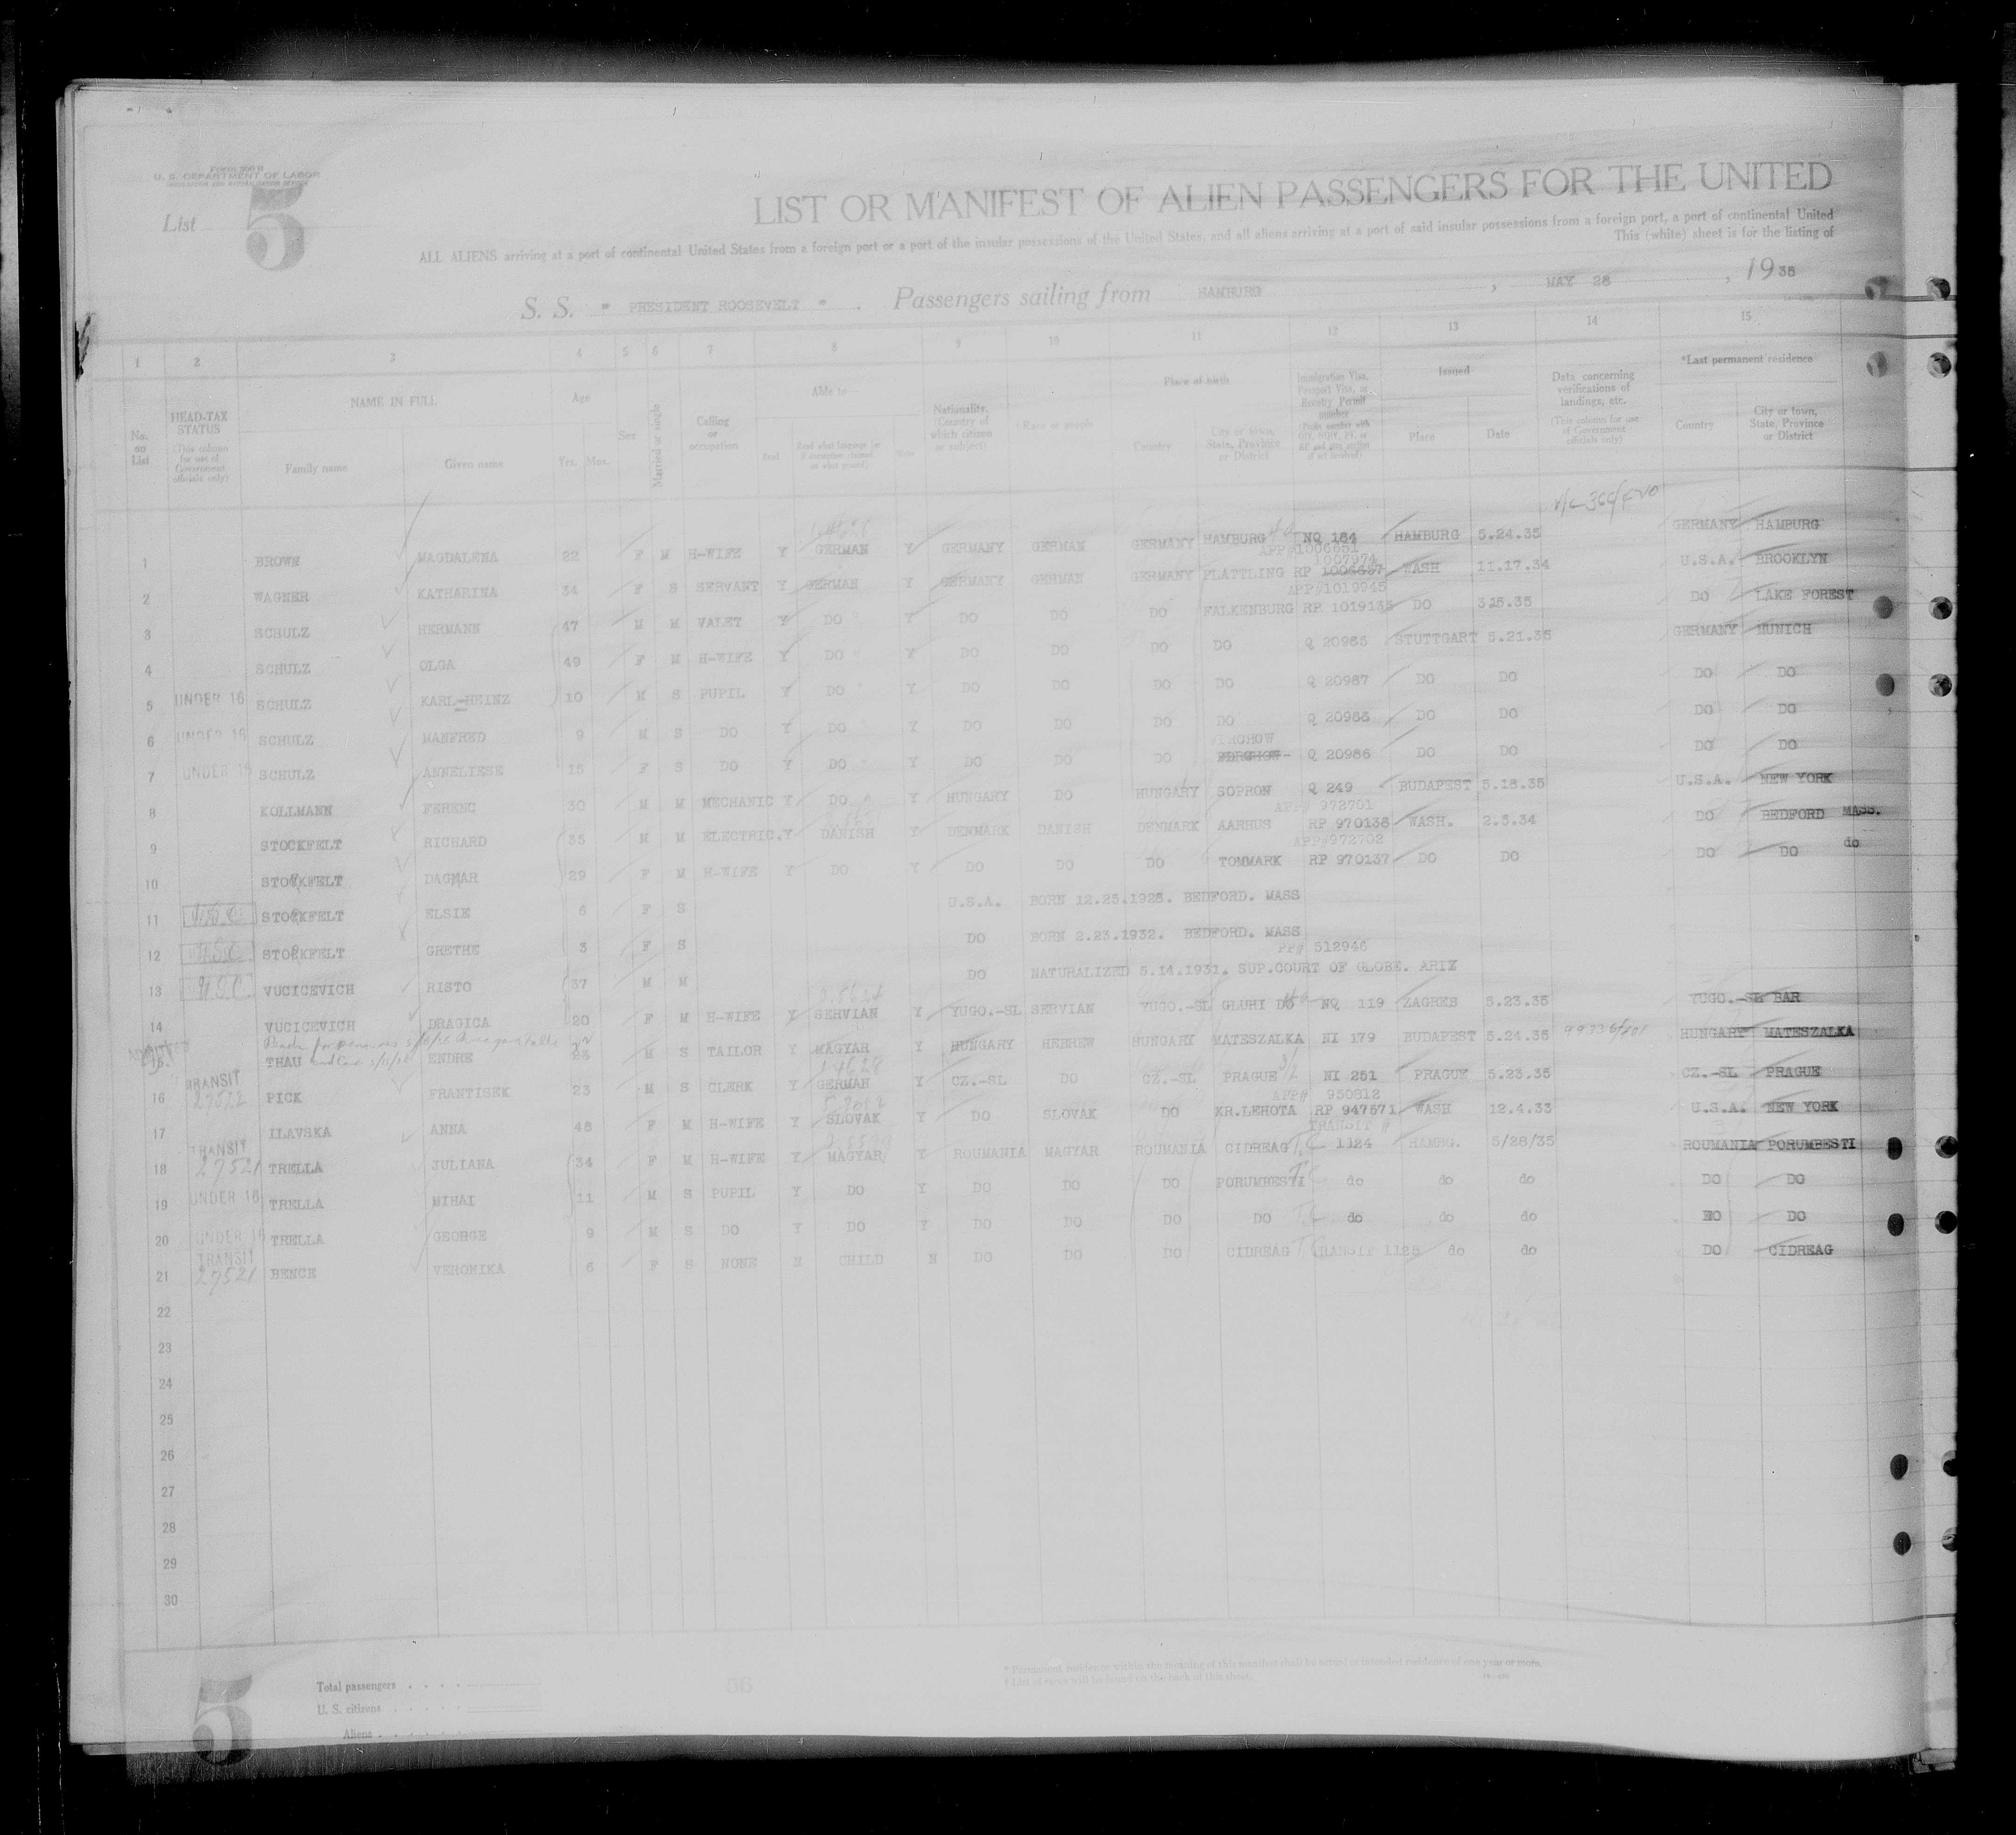 Form 500 B
U. S. DEPARTMENT OF LABOR
IMMIGRATION AND NATURALIZATION SERVICE
List 5
LIST OR MANIFEST OF ALIEN PASSENGERS FOR THE UNITED
ALL ALIENS arriving at a port of continental United States from a foreign port or a port of the insular possessions of the United States, and all aliens arriving at a port of said insular possessions from a foreign port, a port of continental United
This (white) sheet is for the listing of
S. S. " PRESIDENT ROOSEVELT " . Passengers sailing from HAMBURG , MAY 28 , 1935
1 2 3 4 5 6 7 8 9 10 11 12 13 14 15
No. on List
HEAD-TAX STATUS (This column for use of Government officials only)
NAME IN FULL
Family name Given name
Age
Yrs. Mos.
Sex
Married or single
Calling or occupation
Able to
Read Read what language [or if exemption claimed, on what ground] Write
Nationality. (Country of which citizen or subject)
† Race or people
Place of birth
Country City or town, State, Province or District
Immigration Visa, Passport Visa, or Reentry Permit number
Issued
Place Date
Data concerning verifications of landings, etc. (This column for use of Government officials only)
*Last permanent residence
Country City or town, State, Province or District
1 BROWN MAGDALENA 22 F M H-WIFE Y GERMAN Y GERMANY GERMAN GERMANY HAMBURG NQ 184 HAMBURG 5.24.35 GERMANY HAMBURG
APP#1006651
1007974
2 WAGNER KATHARINA 34 F S SERVANT Y GERMAN Y GERMANY GERMAN GERMANY PLATTLING RP 1006697 WASH 11.17.34 U.S.A. BROOKLYN
APP#1019945
3 SCHULZ HERMANN 47 M M VALET Y DO Y DO DO DO FALKENBURG RP 1019135 DO 3.15.35 DO LAKE FOREST
4 SCHULZ OLGA 49 F M H-WIFE Y DO Y DO DO DO DO Q 20985 STUTTGART 5.21.35 GERMANY MUNICH
5 UNDER 16 SCHULZ KARL-HEINZ 10 M S PUPIL Y DO Y DO DO DO DO Q 20987 DO DO DO DO
6 UNDER 16 SCHULZ MANFRED 9 M S DO Y DO Y DO DO DO DO Q 20988 DO DO DO DO
VIRCHOW
7 UNDER 16 SCHULZ ANNELIESE 15 F S DO Y DO Y DO DO DO Q 20986 DO DO DO DO
8 KOLLMANN FERENC 30 M M MECHANIC Y DO Y HUNGARY DO HUNGARY SOPRON Q 249 BUDAPEST 5.18.35 U.S.A. NEW YORK
APP# 972701
9 STOCKFELT RICHARD 35 M M ELECTRIC. Y DANISH Y DENMARK DANISH DENMARK AARHUS RP 970136 WASH. 2.5.34 DO BEDFORD MASS.
APP#972702
10 STOCKFELT DAGMAR 29 F M H-WIFE Y DO Y DO DO DO TOMMARK RP 970137 DO DO DO DO do
11 U.S.C. STOCKFELT ELSIE 6 F S U.S.A. BORN 12.25.1928. BEDFORD. MASS
12 U.S.C. STOCKFELT GRETHE 3 F S DO BORN 2.23.1932. BEDFORD. MASS
PP# 512946
13 U.S.C. VUCICEVICH RISTO 37 M M DO NATURALIZED 5.14.1931. SUP.COURT OF GLOBE. ARIZ
14 VUCICEVICH DRAGICA 20 F M H-WIFE Y SERVIAN Y YUGO.-SL SERVIAN YUGO.-SL GLUHI DO NQ 119 ZAGREB 5.23.35 YUGO.-SL BAR
ADMITTED
15 THAU ENDRE 23 M S TAILOR Y MAGYAR Y HUNGARY HEBREW HUNGARY MATESZALKA NI 179 BUDAPEST 5.24.35 HUNGARY MATESZALKA
TRANSIT
16 PICK FRANTISEK 23 M S CLERK Y GERMAN Y CZ.-SL DO CZ.-SL PRAGUE NI 251 PRAGUE 5.23.35 CZ.-SL PRAGUE
APP# 950812
17 ILAVSKA ANNA 48 F M H-WIFE Y SLOVAK Y DO SLOVAK DO KR.LEHOTA RP 947571 WASH 12.4.33 U.S.A. NEW YORK
TRANSIT TRANSIT #
18 27521 TRELLA JULIANA 34 F M H-WIFE Y MAGYAR Y ROUMANIA MAGYAR ROUMANIA CIDREAG T.C 1124 HAMBG. 5/28/35 ROUMANIA PORUMBESTI
19 UNDER 16 TRELLA MIHAI 11 M S PUPIL Y DO Y DO DO DO PORUMBESTI do do do DO DO
20 UNDER 16 TRELLA GEORGE 9 M S DO Y DO Y DO DO DO DO do do do DO DO
TRANSIT
21 27521 BENCE VERONIKA 6 F S NONE N CHILD N DO DO DO CIDREAG TRANSIT 1125 do do DO CIDREAG
22
23
24
25
26
27
28
29
30
5
Total passengers . . . .
U. S. citizens . . . . .
Aliens . . . . . .
56
* Permanent residence within the meaning of this manifest shall be actual or intended residence of one year or more.
† List of races will be found on the back of this sheet.